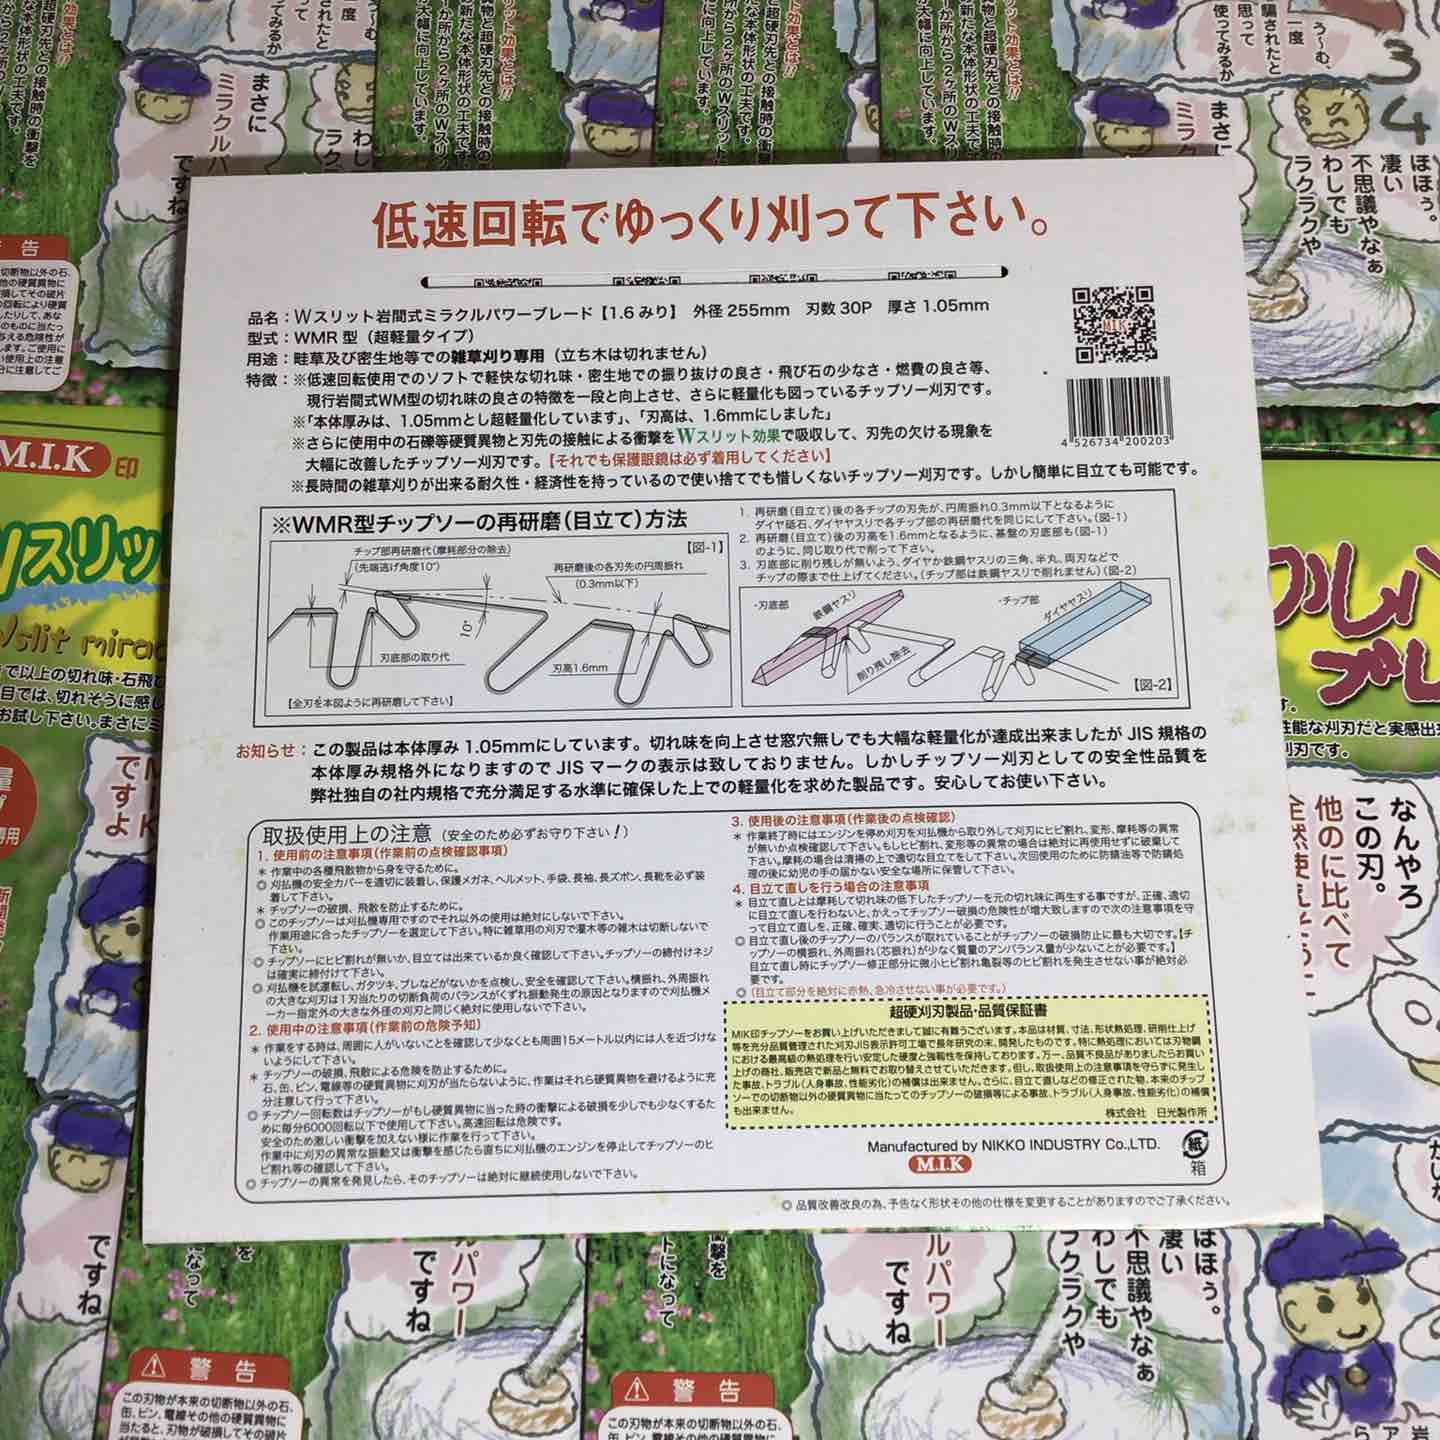 低速回転でゆっくり刈って下さい。
品名：Wスリット岩間式ミラクルパワーブレード【1.6みり】 外径 255mm 刃数 30P 厚さ 1.05mm
型式：WMR 型（超軽量タイプ）
用途：畦草及び密生地等での雑草刈り専用（立ち木は切れません）
特徴：※低速回転使用でのソフトで軽快な切れ味・密生地での振り抜けの良さ・飛び石の少なさ・燃費の良さ等、
現行岩間式WM型の切れ味の良さの特徴を一段と向上させ、さらに軽量化も図っているチップソー刈刃です。
※「本体厚みは、1.05mmとし超軽量化しています」、「刃高は、1.6mmにしました」
※さらに使用中の石礫等硬質異物と刃先の接触による衝撃をWスリット効果で吸収して、刃先の欠ける現象を
大幅に改善したチップソー刈刃です。【それでも保護眼鏡は必ず着用してください】
※長時間の雑草刈りが出来る耐久性・経済性を持っているので使い捨てでも惜しくないチップソー刈刃です。しかし簡単に目立ても可能です。
MIK
4 526734 200203
※WMR型チップソーの再研磨（目立て）方法
【図-1】
チップ部再研磨代（摩耗部分の除去）
（先端逃げ角度10°）
再研磨後の各刃先の円周振れ
（0.3mm以下）
10°
刃底部の取り代
刃高1.6mm
【全刃を本図ように再研磨して下さい】
1. 再研磨（目立て）後の各チップの刃先が、円周振れ0.3mm以下となるように
ダイヤ砥石、ダイヤヤスリで各チップ部の再研磨代を同じにして下さい。（図-1）
2. 再研磨（目立て）後の刃高を1.6mmとなるように、基盤の刃底部も（図-1）
のように、同じ取り代で削って下さい。
3. 刃底部に削り残しが無いよう、ダイヤか鉄鋼ヤスリの三角、半丸、両刃などで
チップの際まで仕上げてください。（チップ部は鉄鋼ヤスリで削れません）（図-2）
・刃底部
鉄鋼ヤスリ
・チップ部
ダイヤヤスリ
削り残し除去
【図-2】
お知らせ：この製品は本体厚み 1.05mmにしています。切れ味を向上させ窓穴無しでも大幅な軽量化が達成出来ましたが JIS 規格の
本体厚み規格外になりますので JIS マークの表示は致しておりません。しかしチップソー刈刃としての安全性品質を
弊社独自の社内規格で充分満足する水準に確保した上での軽量化を求めた製品です。安心してお使い下さい。
取扱使用上の注意（安全のため必ずお守り下さい！）
1. 使用前の注意事項（作業前の点検確認事項）
＊ 作業中の各種飛散物から身を守るために。
◎ 刈払機の安全カバーを適切に装着し、保護メガネ、ヘルメット、手袋、長袖、長ズボン、長靴を必ず装
着して下さい。
＊ チップソーの破損、飛散を防止するために。
◎ このチップソーは刈払機専用ですのでそれ以外の使用は絶対にしないで下さい。
作業用途に合ったチップソーを選定して下さい。特に雑草用の刈刃で灌木等の雑木は切断しないで
下さい。
◎ チップソーにヒビ割れが無いか、目立ては出来ているか良く確認して下さい。チップソーの締付けネジ
は確実に締付けて下さい。
◎ 刈払機を試運転し、ガタツキ、ブレなどがないかを点検し、安全を確認して下さい。横振れ、外周振れ
の大きな刈刃は１刃当たりの切断負荷のバランスがくずれ振動発生の原因となりますので刈払機メ
ーカー指定外の大きな外径の刈刃と同じく絶対に使用しないで下さい。
2. 使用中の注意事項（作業前の危険予知）
＊ 作業をする時は、周囲に人がいないことを確認して少なくとも周囲15メートル以内には人を近づけな
いようにして下さい。
＊ チップソーの破損、飛散による危険を防止するために。
石、缶、ビン、電線等の硬質異物に刈刃が当たらないように、作業はそれら硬質異物を避けるように充
分注意して行って下さい。
◎ チップソー回転数はチップソーがもし硬質異物に当った時の衝撃による破損を少しでも少なくするた
めに毎分6000回転以下で使用して下さい。高速回転は危険です。
安全のため激しい衝撃を加えない様に作業を行って下さい。
作業中に刈刃の異常な振動又は衝撃を感じたら直ちに刈払機のエンジンを停止してチップソーのヒ
ビ割れ等の確認して下さい。
◎ チップソーの異常を発見したら、そのチップソーは絶対に継続使用しないで下さい。
3. 使用後の注意事項（作業後の点検確認）
＊ 作業終了時にはエンジンを停め刈刃を刈払機から取り外して刈刃にヒビ割れ、変形、摩耗等の異常
が無いか点検確認して下さい。もしヒビ割れ、変形等の異常の場合は絶対に再使用せずに破棄して
下さい。摩耗の場合は清掃の上で適切な目立てをして下さい。次回使用のために防錆油等で防錆処
理の後に幼児の手の届かない安全な場所に保管して下さい。
4. 目立て直しを行う場合の注意事項
＊ 目立て直しとは摩耗して切れ味の低下したチップソーを元の切れ味に再生する事ですが、正確、適切
に目立て直しを行わないと、かえってチップソー破損の危険性が増大致しますので次の注意事項を守
って目立て直しを、正確、確実、適切に行うことが必要です。
◎ 目立て直し後のチップソーのバランスが取れていることがチップソーの破損防止に最も大切です。【チ
ップソーの横振れ、外周振れ（芯振れ）が少なく質量のアンバランス量が少ないことが必要です。】
目立て直し時にチップソー修正部分に微小ヒビ割れ亀裂等のヒビ割れを発生させない事が絶対必
要です。
◎（目立て部分を絶対に赤熱、急冷させない事が必要です。）
超硬刈刃製品・品質保証書
MIK印チップソーをお買い上げいただきまして誠に有難うございます。本品は材質、寸法、形状熱処理、研削仕上げ
等を充分品質管理された刈刃JIS表示許可工場で長年研究の末、開発したものです。特に熱処理においては刃物鋼
における最高級の熱処理を行い安定した硬度と強靱性を保持しております。万一、品質不良品がありましたらお買い
上げの商社、販売店で新品と無料でお取り替えさせていただきます。但し、取扱使用上の注意事項を守らずに発生し
た事故、トラブル（人身事故、性能劣化）の補償は出来ません。さらに、目立て直しなどの修正された物、本来のチップ
ソーでの切断物以外の硬質異物に当たってのチップソーの破損等による事故、トラブル（人身事故、性能劣化）の補償
も出来ません。
株式会社 日光製作所
Manufactured by NIKKO INDUSTRY Co.,LTD.
M.I.K
紙
箱
◎ 品質改善改良の為、予告なく形状その他の仕様を変更することがありますのでご了承ください。
M.I.K 印
Wスリッ
まさに
ミラクルパ
ですね
3
4
ほほぅ。
凄い
不思議やなぁ
わしでも
ラクラクや
なんやろ
この刃。
他のに比べて
ルパワー
ですね
警告
この刃物が本来の切断物以外の石、
缶、ビン、電線その他の硬質異物に
当たると、刃物が破損してその破片
警告
この刃物が本来の切断物以外の石、
缶、ビン、電線その他の硬質異物に